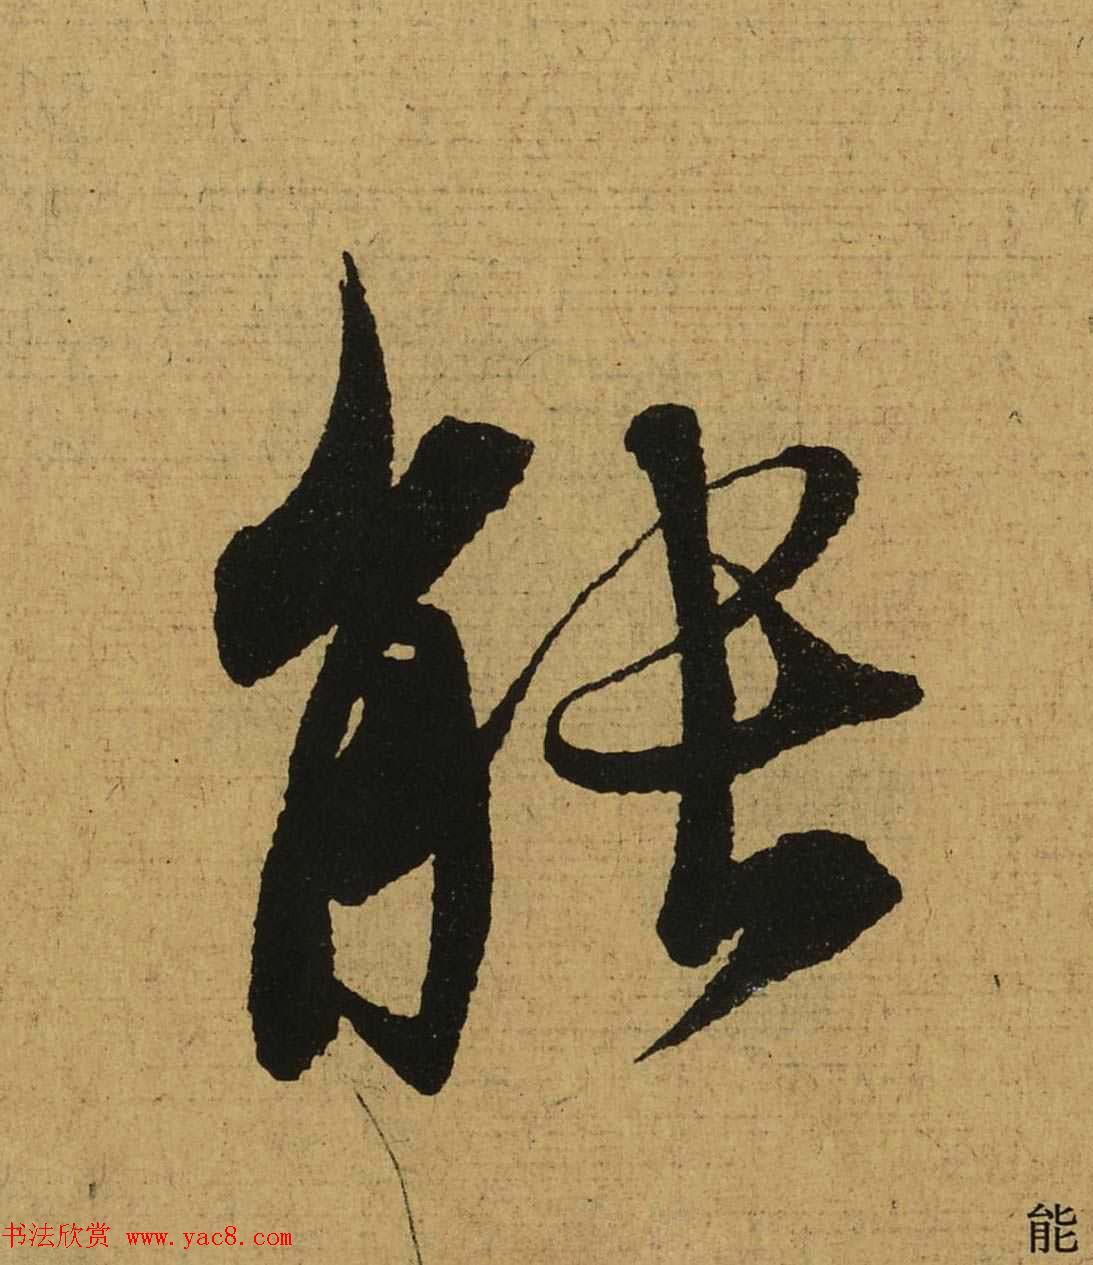 能
书法欣赏 www.yac8.com
能